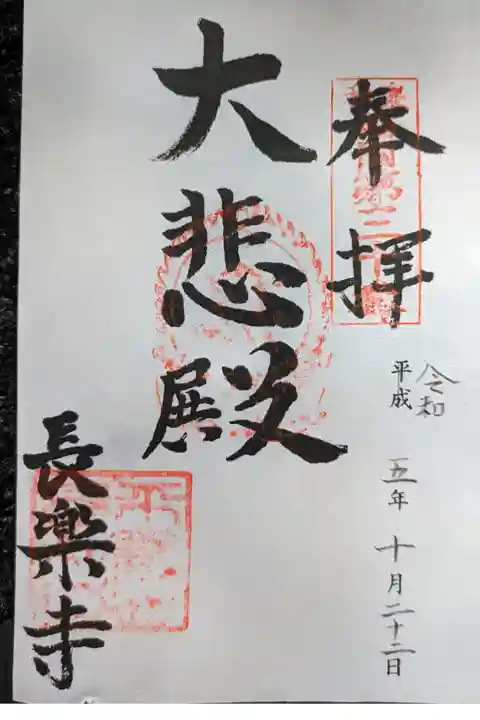 奉拝
令和
平成 五年 十月二十二日
大悲殿
長楽寺